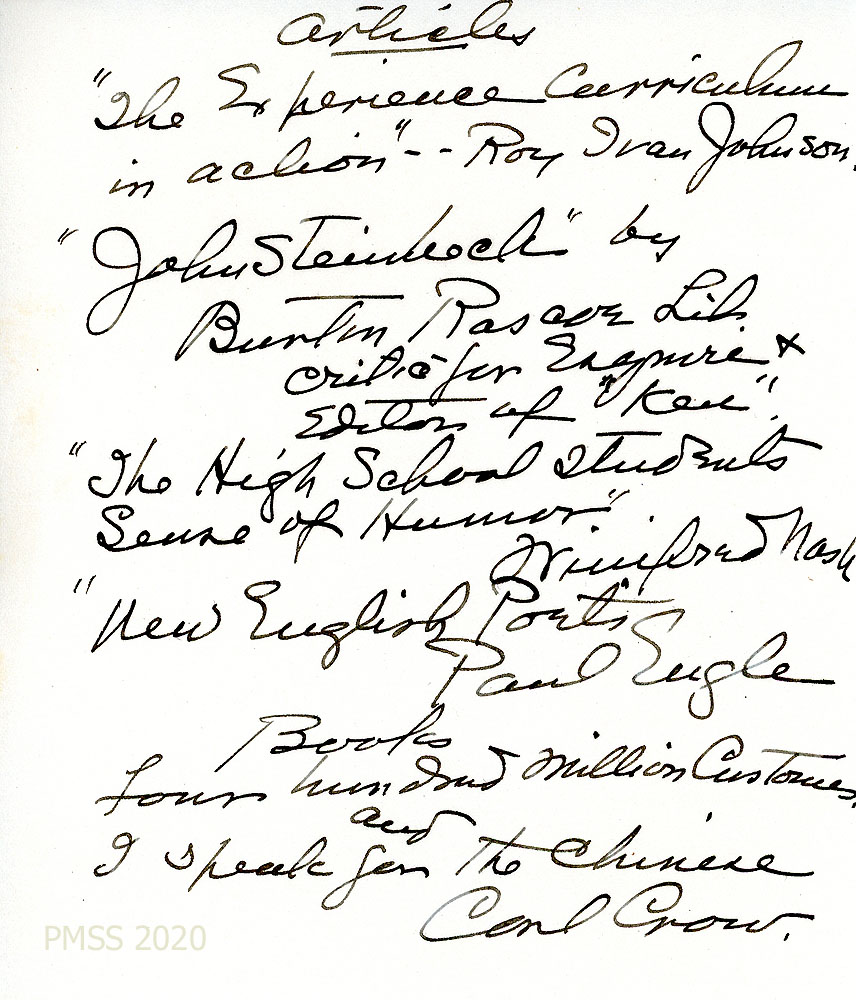 Articles
"The Experience Curriculum
in action" -- Roy Ivan Johnson.
"John Steinbeck" by
Burton Rascoe Lit.
critic for Esquire &
Editor of "Ken".
"The High School Students
Sense of Humor"
Winifred Nash
"New English Poets"
Paul Engle
Books
Four hundred million Customers
and
I speak for the Chinese
Carl Crow.
PMSS 2020